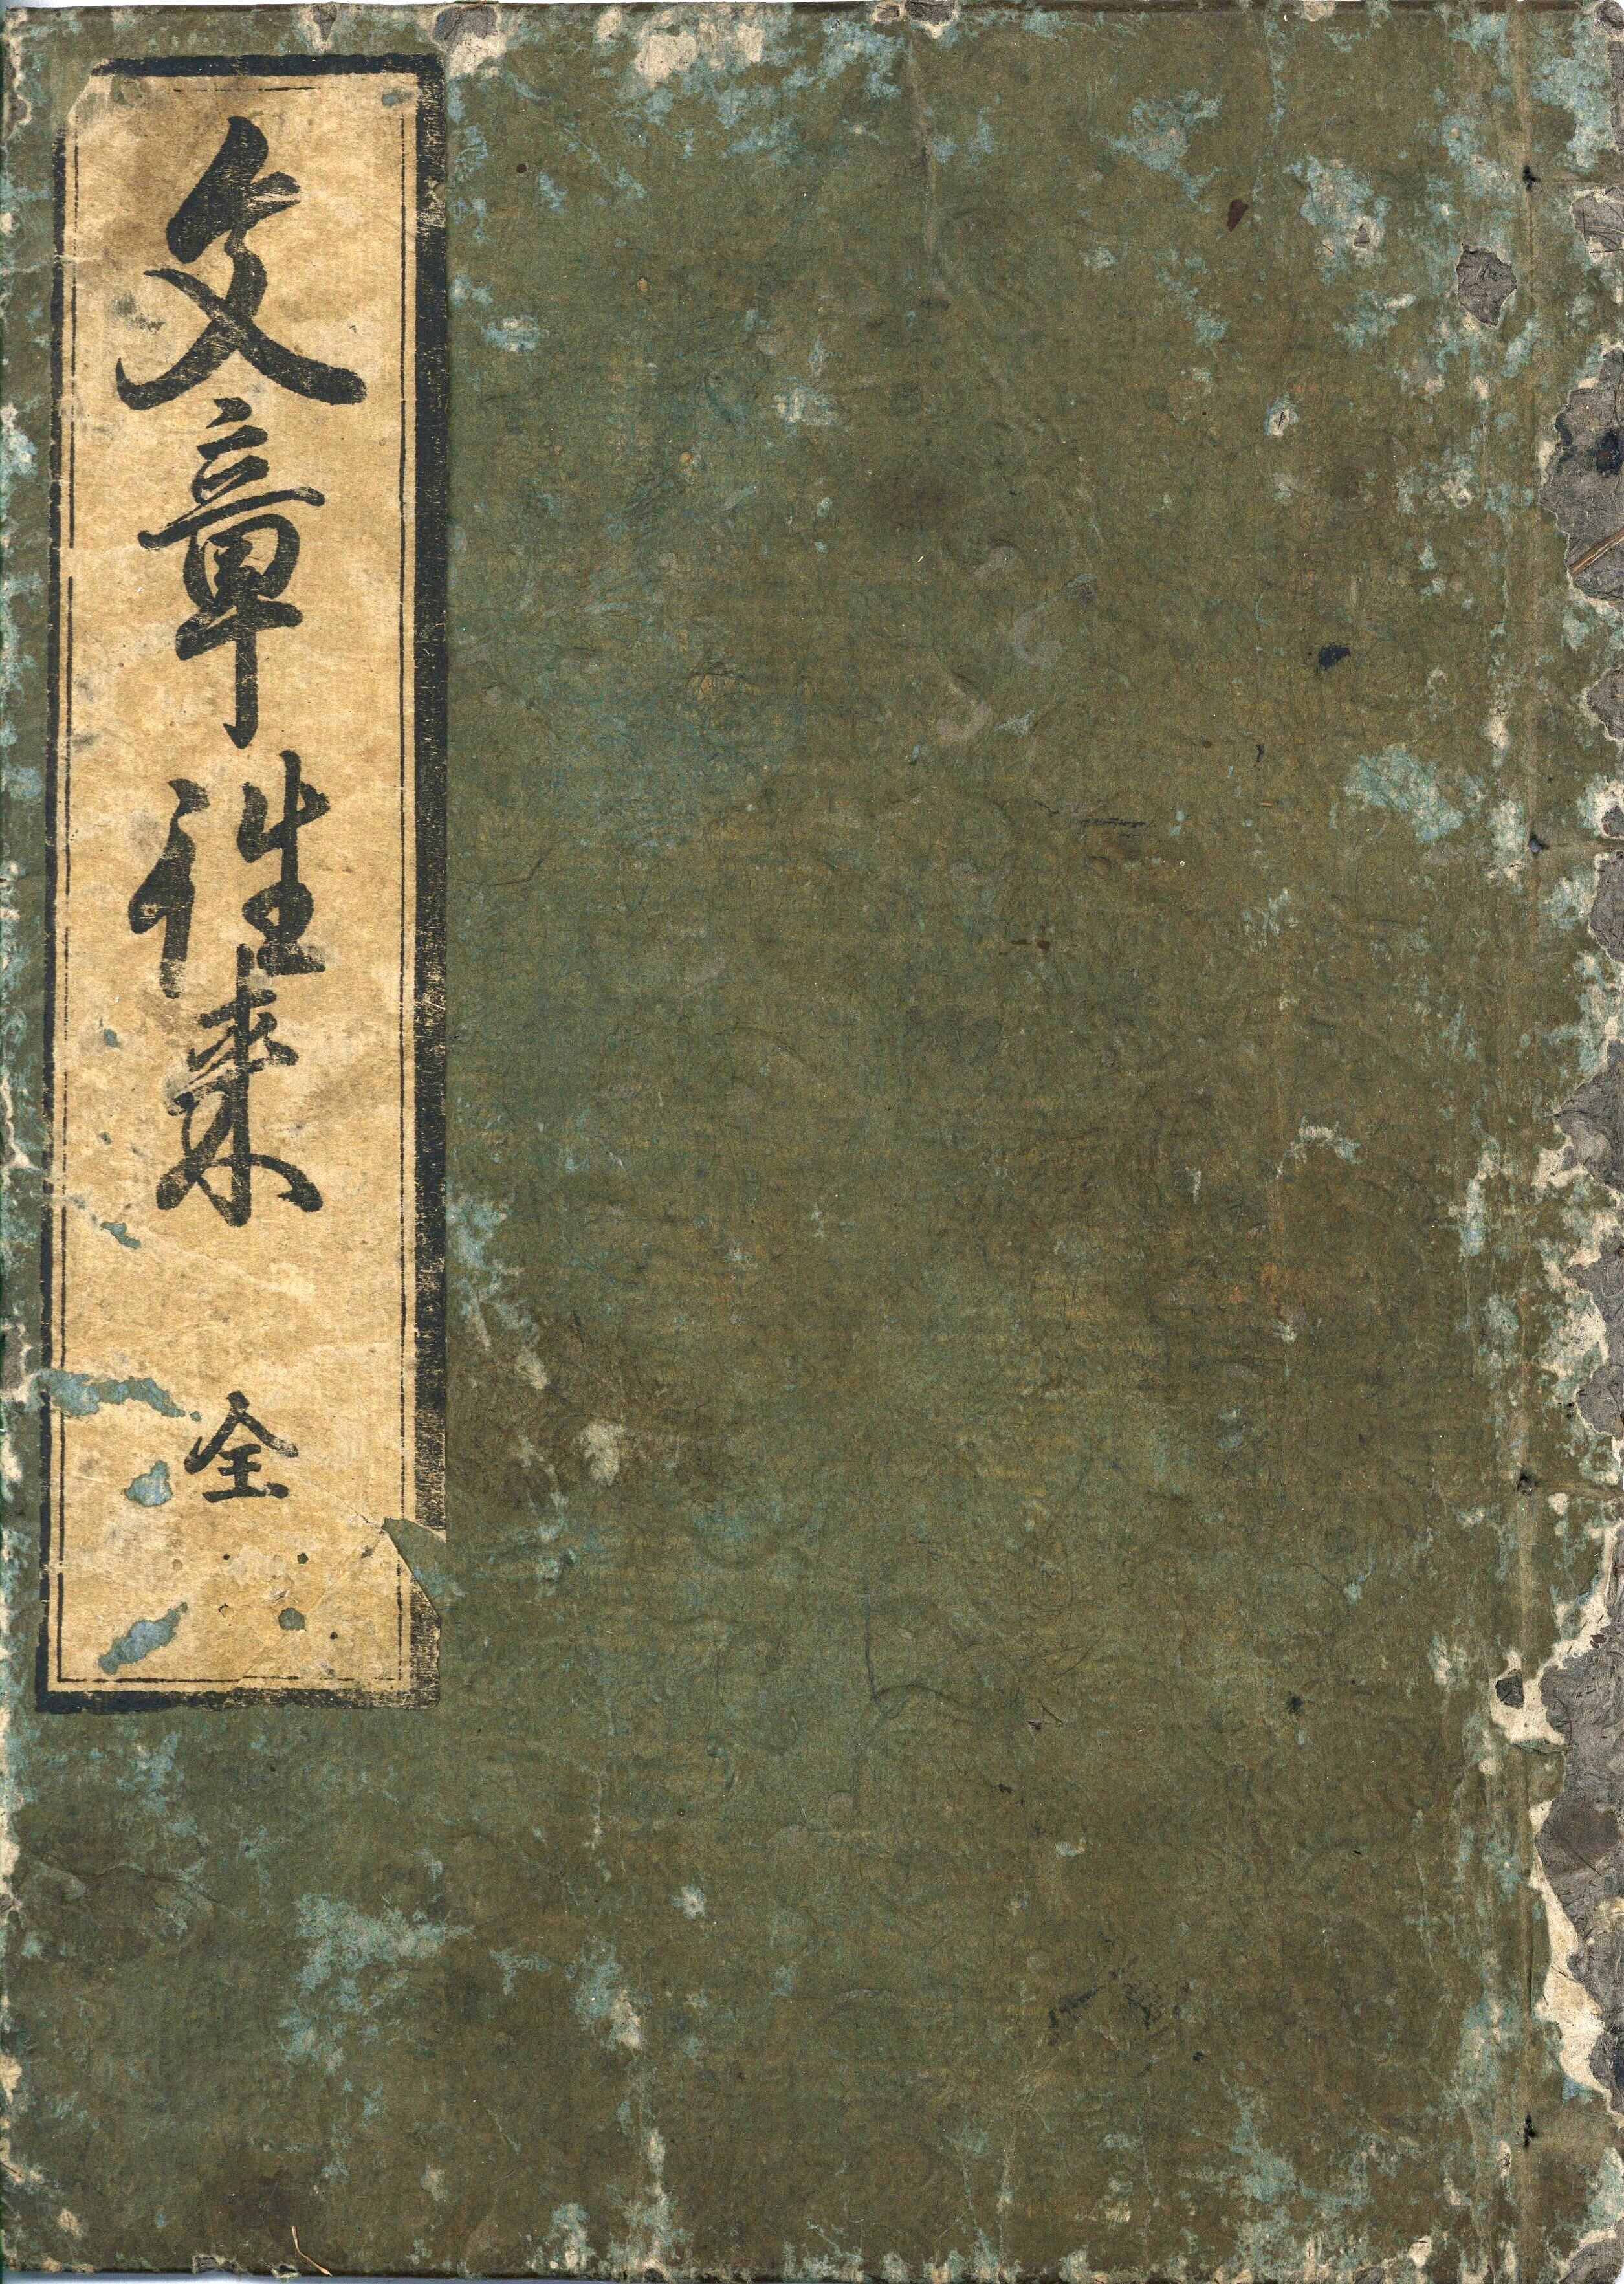 文章往来 全